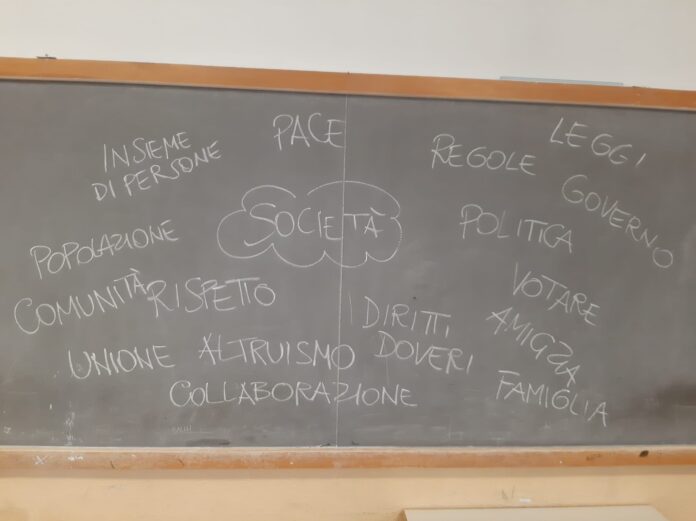 PACE
LEGGI
INSIEME
DI PERSONE
REGOLE
GOVERNO
SOCIETÀ
POLITICA
POPOLAZIONE
COMUNITÀ
RISPETTO
VOTARE
DIRITTI
DOVERI
AMIGZIA
UNIONE
ALTRUISMO
FAMIGLIA
COLLABORAZIONE